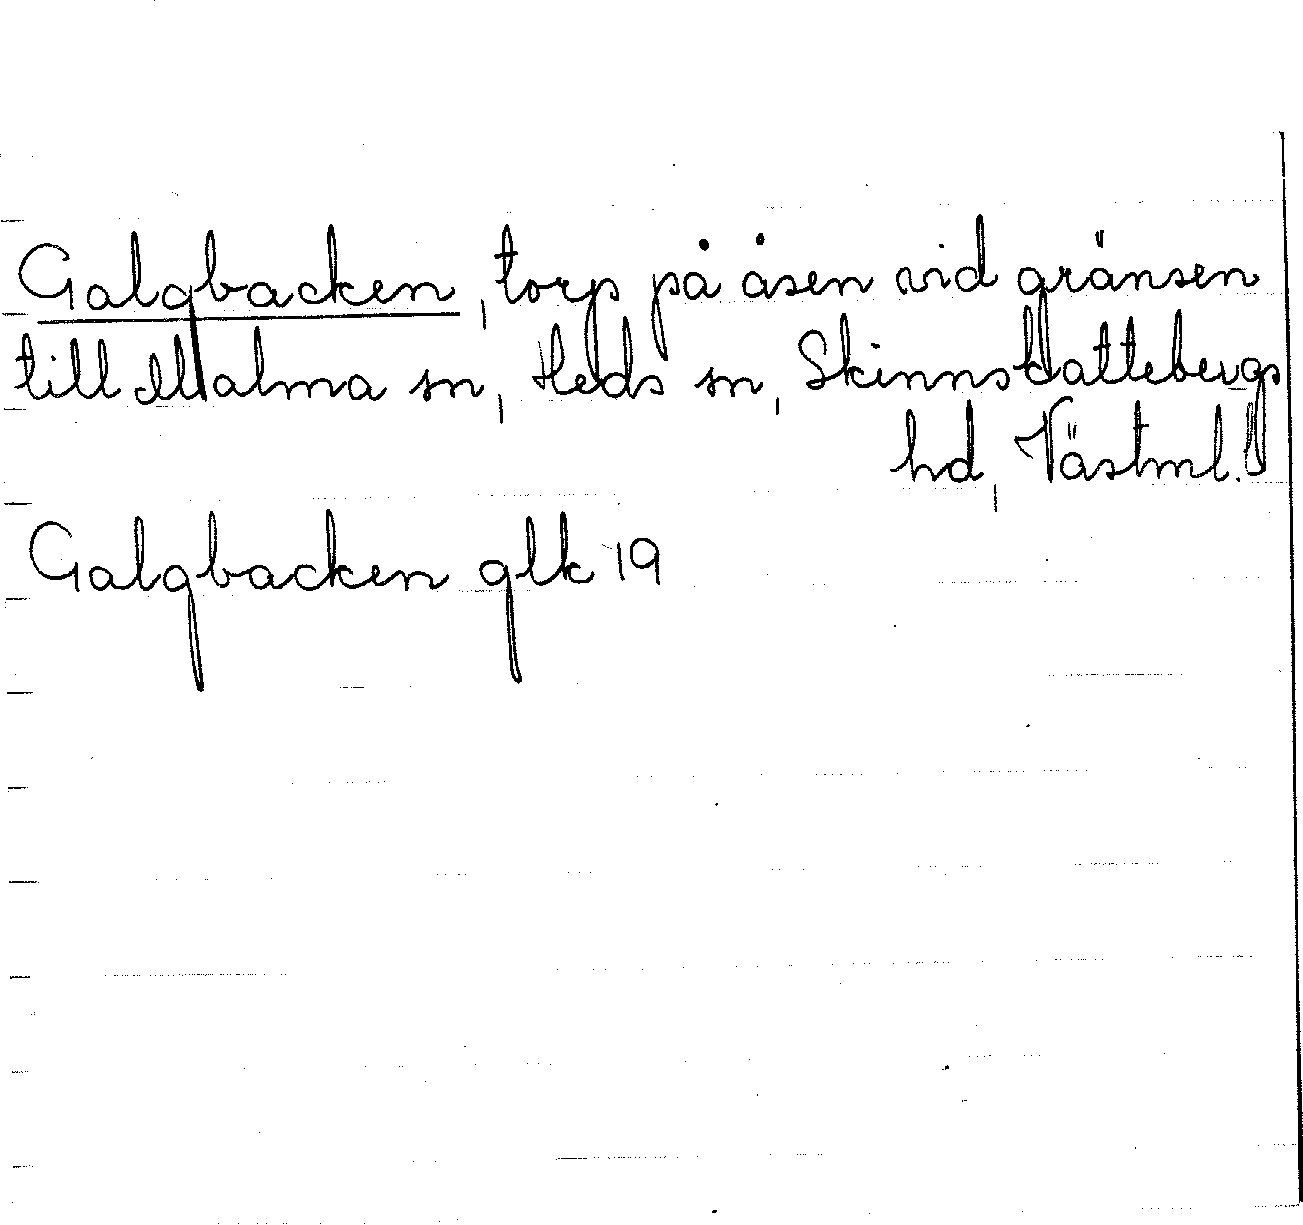 Galgbacken, torp på åsen vid gränsen
till Malma sn, Heds sn, Skinnskattebergs
hd, Västml.
Galgbacken glk 19